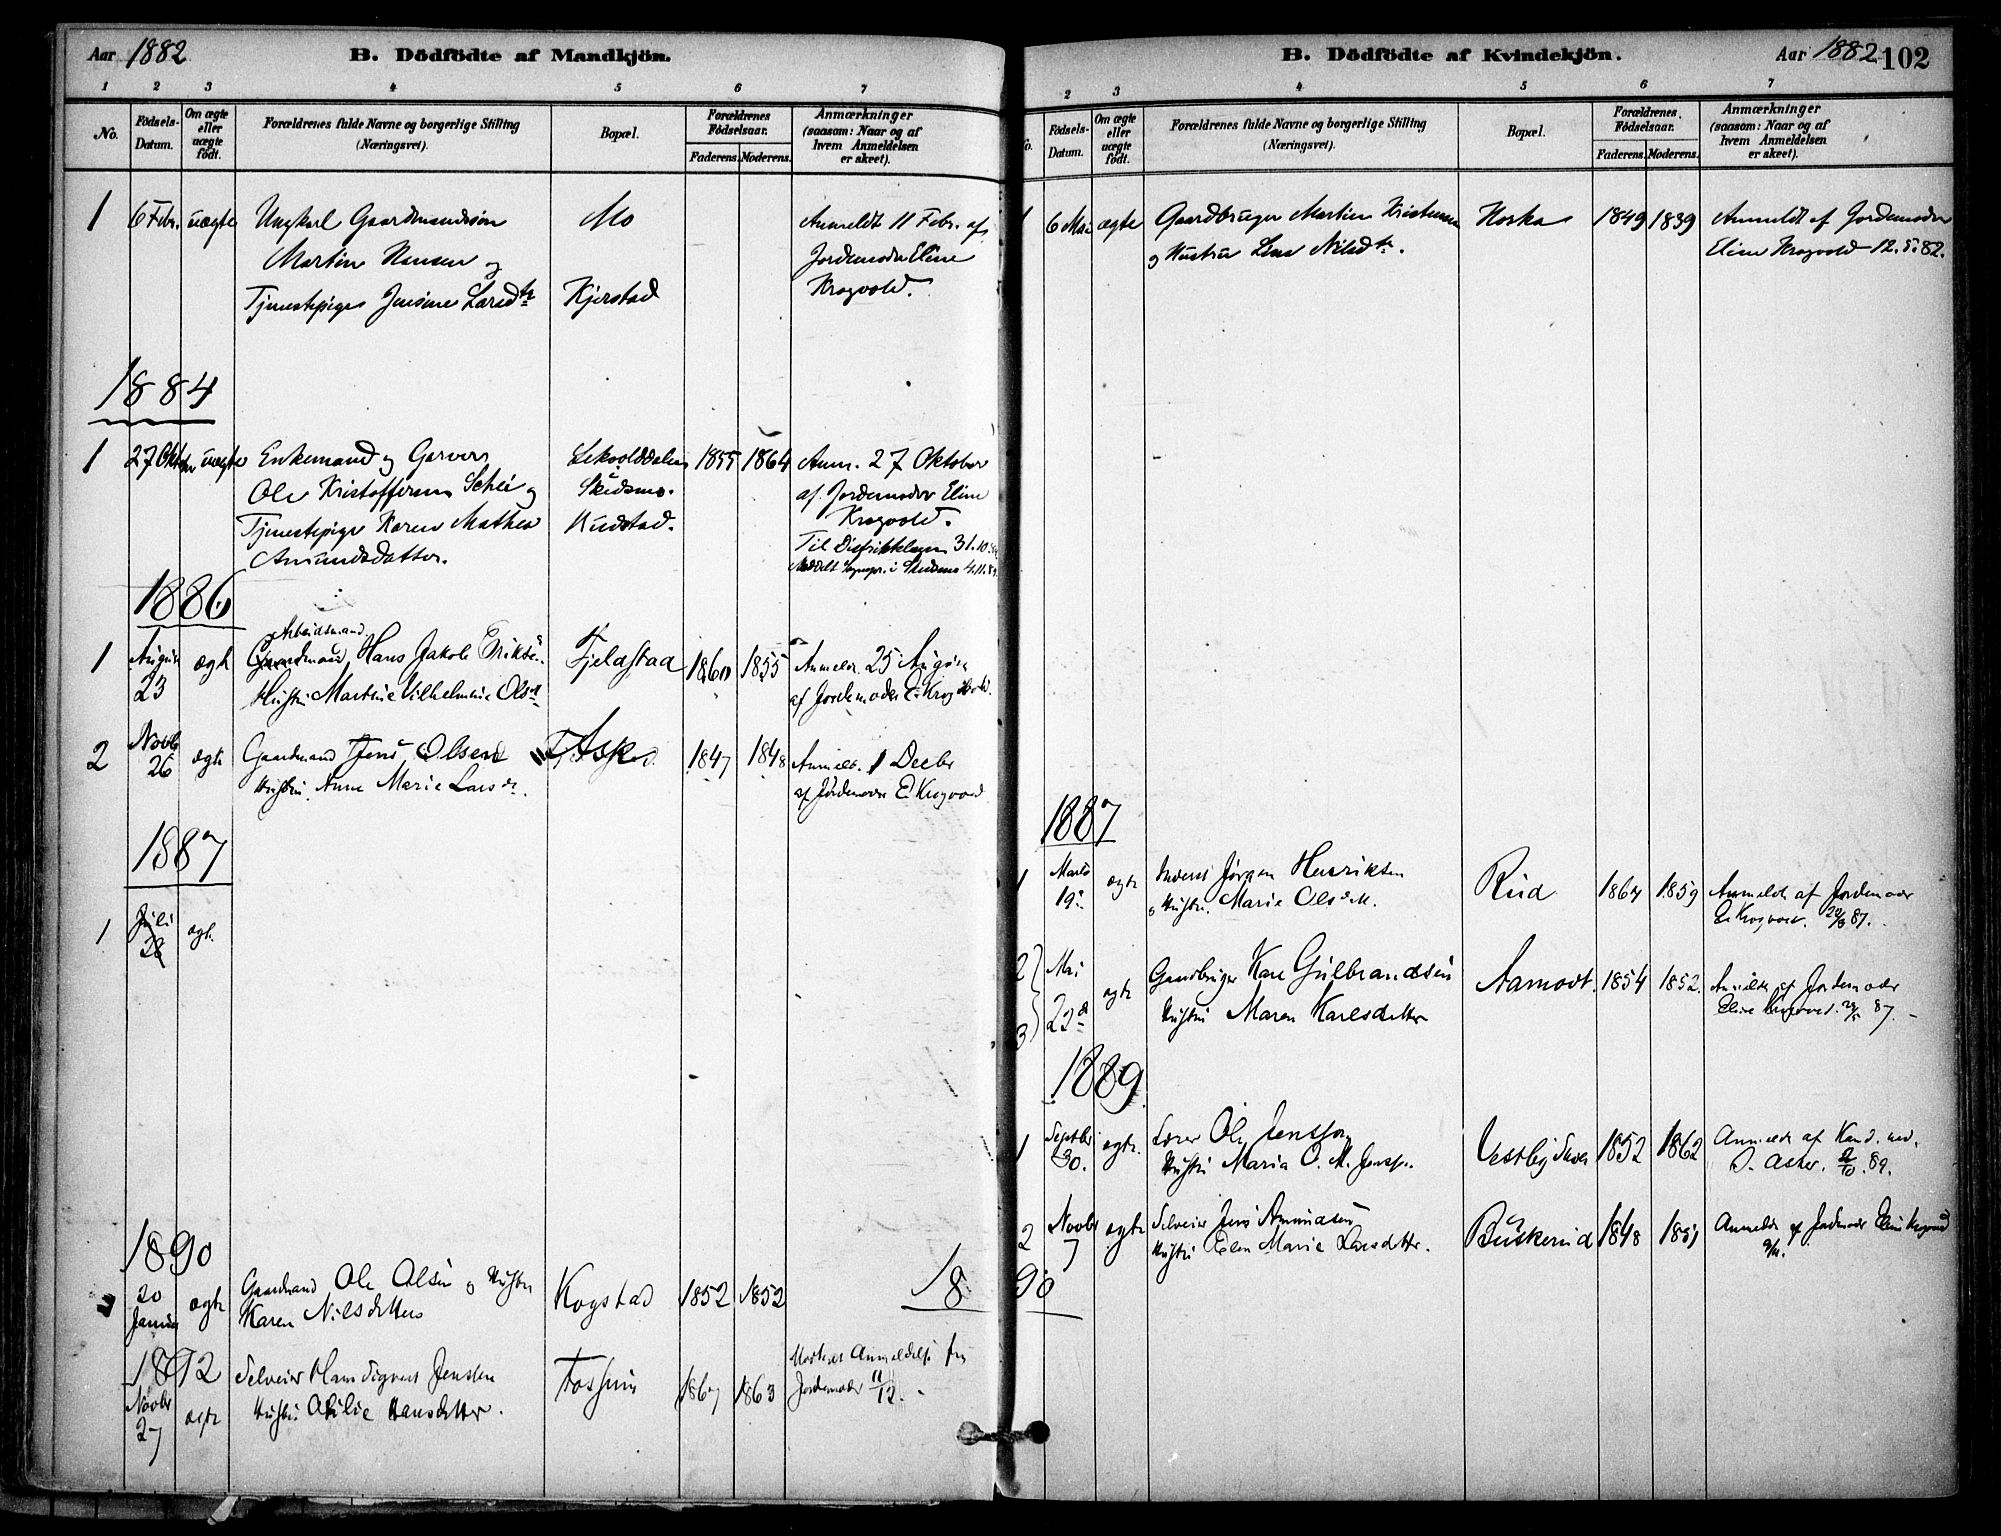 Aar 1882
B. Dödfödte af Mandkjön.
1 2 3 4 5 6 7
No.
Födsels-
Datum.
Om ægte
eller
uægte
födt.
Forældrenes fulde Navne og borgerlige Stilling
(Næringsvei).
Bopæl.
Forældrenes
Födselsaar.
Faderens. Moderens.
Anmærkninger
(saasom: Naar og af
hvem Anmeldelsen
er skeet).
1 6 Febr. uægte Ungkarl Gaardmandssøn Mo Anmeldt 11 Febr. af
Martin Hansen og Jordemoder Eline
Tjenestepige Jensine Larsdtr Kjerstad Krogvold.
1884
1 27 Oktober uægte Enkemand og Garver 1855 1864 Anm. 27 Oktober
Ole Kristoffersen Schei og Skedsmo. af Jordemoder Eline
Tjenestepige Karen Mathea Krogvold.
Amundsdatter. Til Distriktslægen 31.10.
i Skedsmo 4.11.
1886
Arbeidsmand
1 August ægte Gaardmand Hans Jakob Eriksen Fjeldstad 1860 1855 Anmeldt 25 August
23 Hustru Martine Vilhelmine Olsd af Jordemoder E. Krogvold.
2 Novbr ægte Gaardmand Jens Olsen Ask 1847 1848 Anmeldt 1 Decbr
26 Hustru Anne Marie Larsdr. af Jordemoder E. Krogvold
1887
1 Juli ægte
28
1890
20 ægte Gaardmand Ole Olsen og Hustru Kogstad 1852 1852
Januar Karen Nilsdatter
1892
Novbr ægte Selveier Hans Sigvart Jensen Fossum 1867 1863 Anmeldelse fra
27 Hustru Hansdatter. Jordemoder 11/12.
Aar 1882 102
B. Dödfödte af Kvindekjön.
2 3 4 5 6 7
o.
Födsels-
Datum.
Om ægte
eller
uægte
födt.
Forældrenes fulde Navne og borgerlige Stilling
(Næringsvei).
Bopæl.
Forældrenes
Födselsaar.
Faderens. Moderens.
Anmærkninger
(saasom: Naar og af
hvem Anmeldelsen
er skeet).
1 6 Mai ægte Gaardbruger Martin Kristiansen 1849 1839 Anmeldt af Jordemoder
og Hustru Lina Nilsdtr. Eline Krogvold 12.5.82.
1887
1 Marts ægte Jørgen Henriksen Rud 1864 1859 Anmeldt af Jordemoder
19 og Hustru Marie Olsd. E. Krogvold. 87.
2 Mai ægte Gaardbruger Kare Gulbrandsen Aamodt. 1854 1852. Anmeldt af Jordemoder
3 22 Hustru Maren Karlsdatter Eline Krogvold. 87.
1889
1 Septbr ægte Ole Jensen 1852 1862 Anmeldt af Kand. med.
30. Hustru Maria O. M. Jensen. 2/10 89.
2 Novbr ægte Selveier Jens Amundsen Buskerud 1848 1851 Anmeldt af Jordemoder Eline Krogvold
7 Hustru Elen Marie Larsdatter.
1890